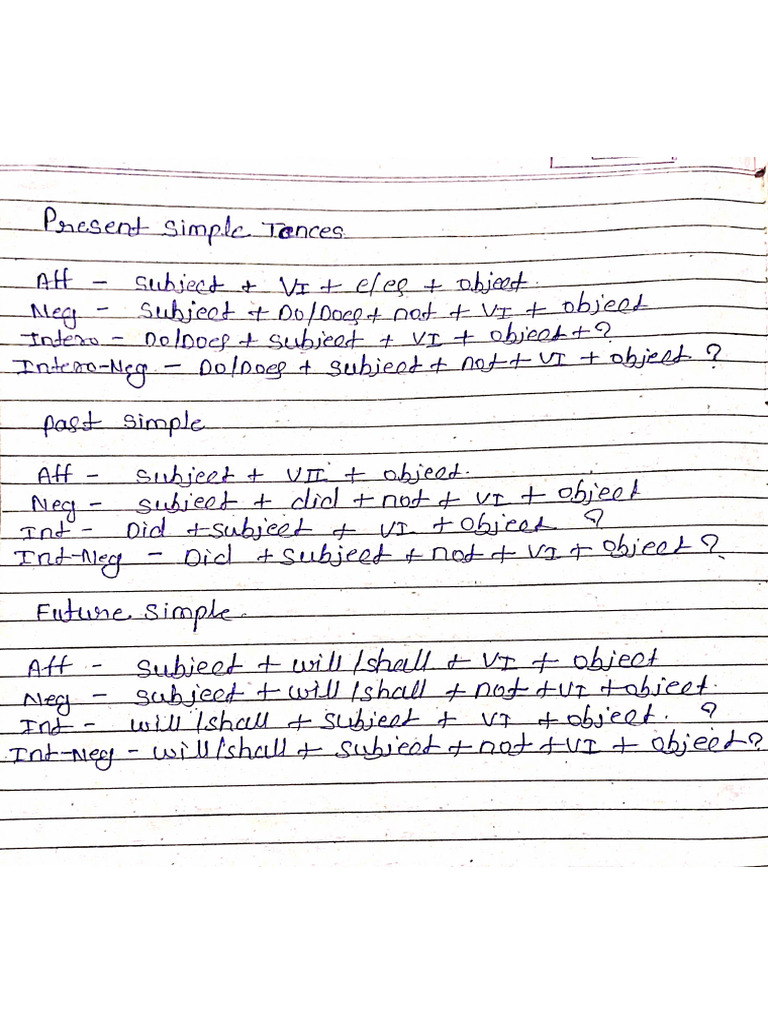 Present Simple Tences
Aff - Subject + VI + e/es + object.
Neg - Subject + Do/Does + not + VI + object
Intero - Do/Does + subject + VI + object + ?
Intero-Neg - Do/Does + subject + not + VI + object ?
past simple
Aff - subject + VII + object.
Neg - subject + did + not + VI + object
Int - Did + subject + VI + object ?
Int-Neg - Did + subject + not + VI + object ?
Future simple.
Aff - subject + will/shall + VI + object
Neg - subject + will/shall + not + VI + object.
Int - will/shall + subject + VI + object. ?
Int-Neg - will/shall + subject + not + VI + object?